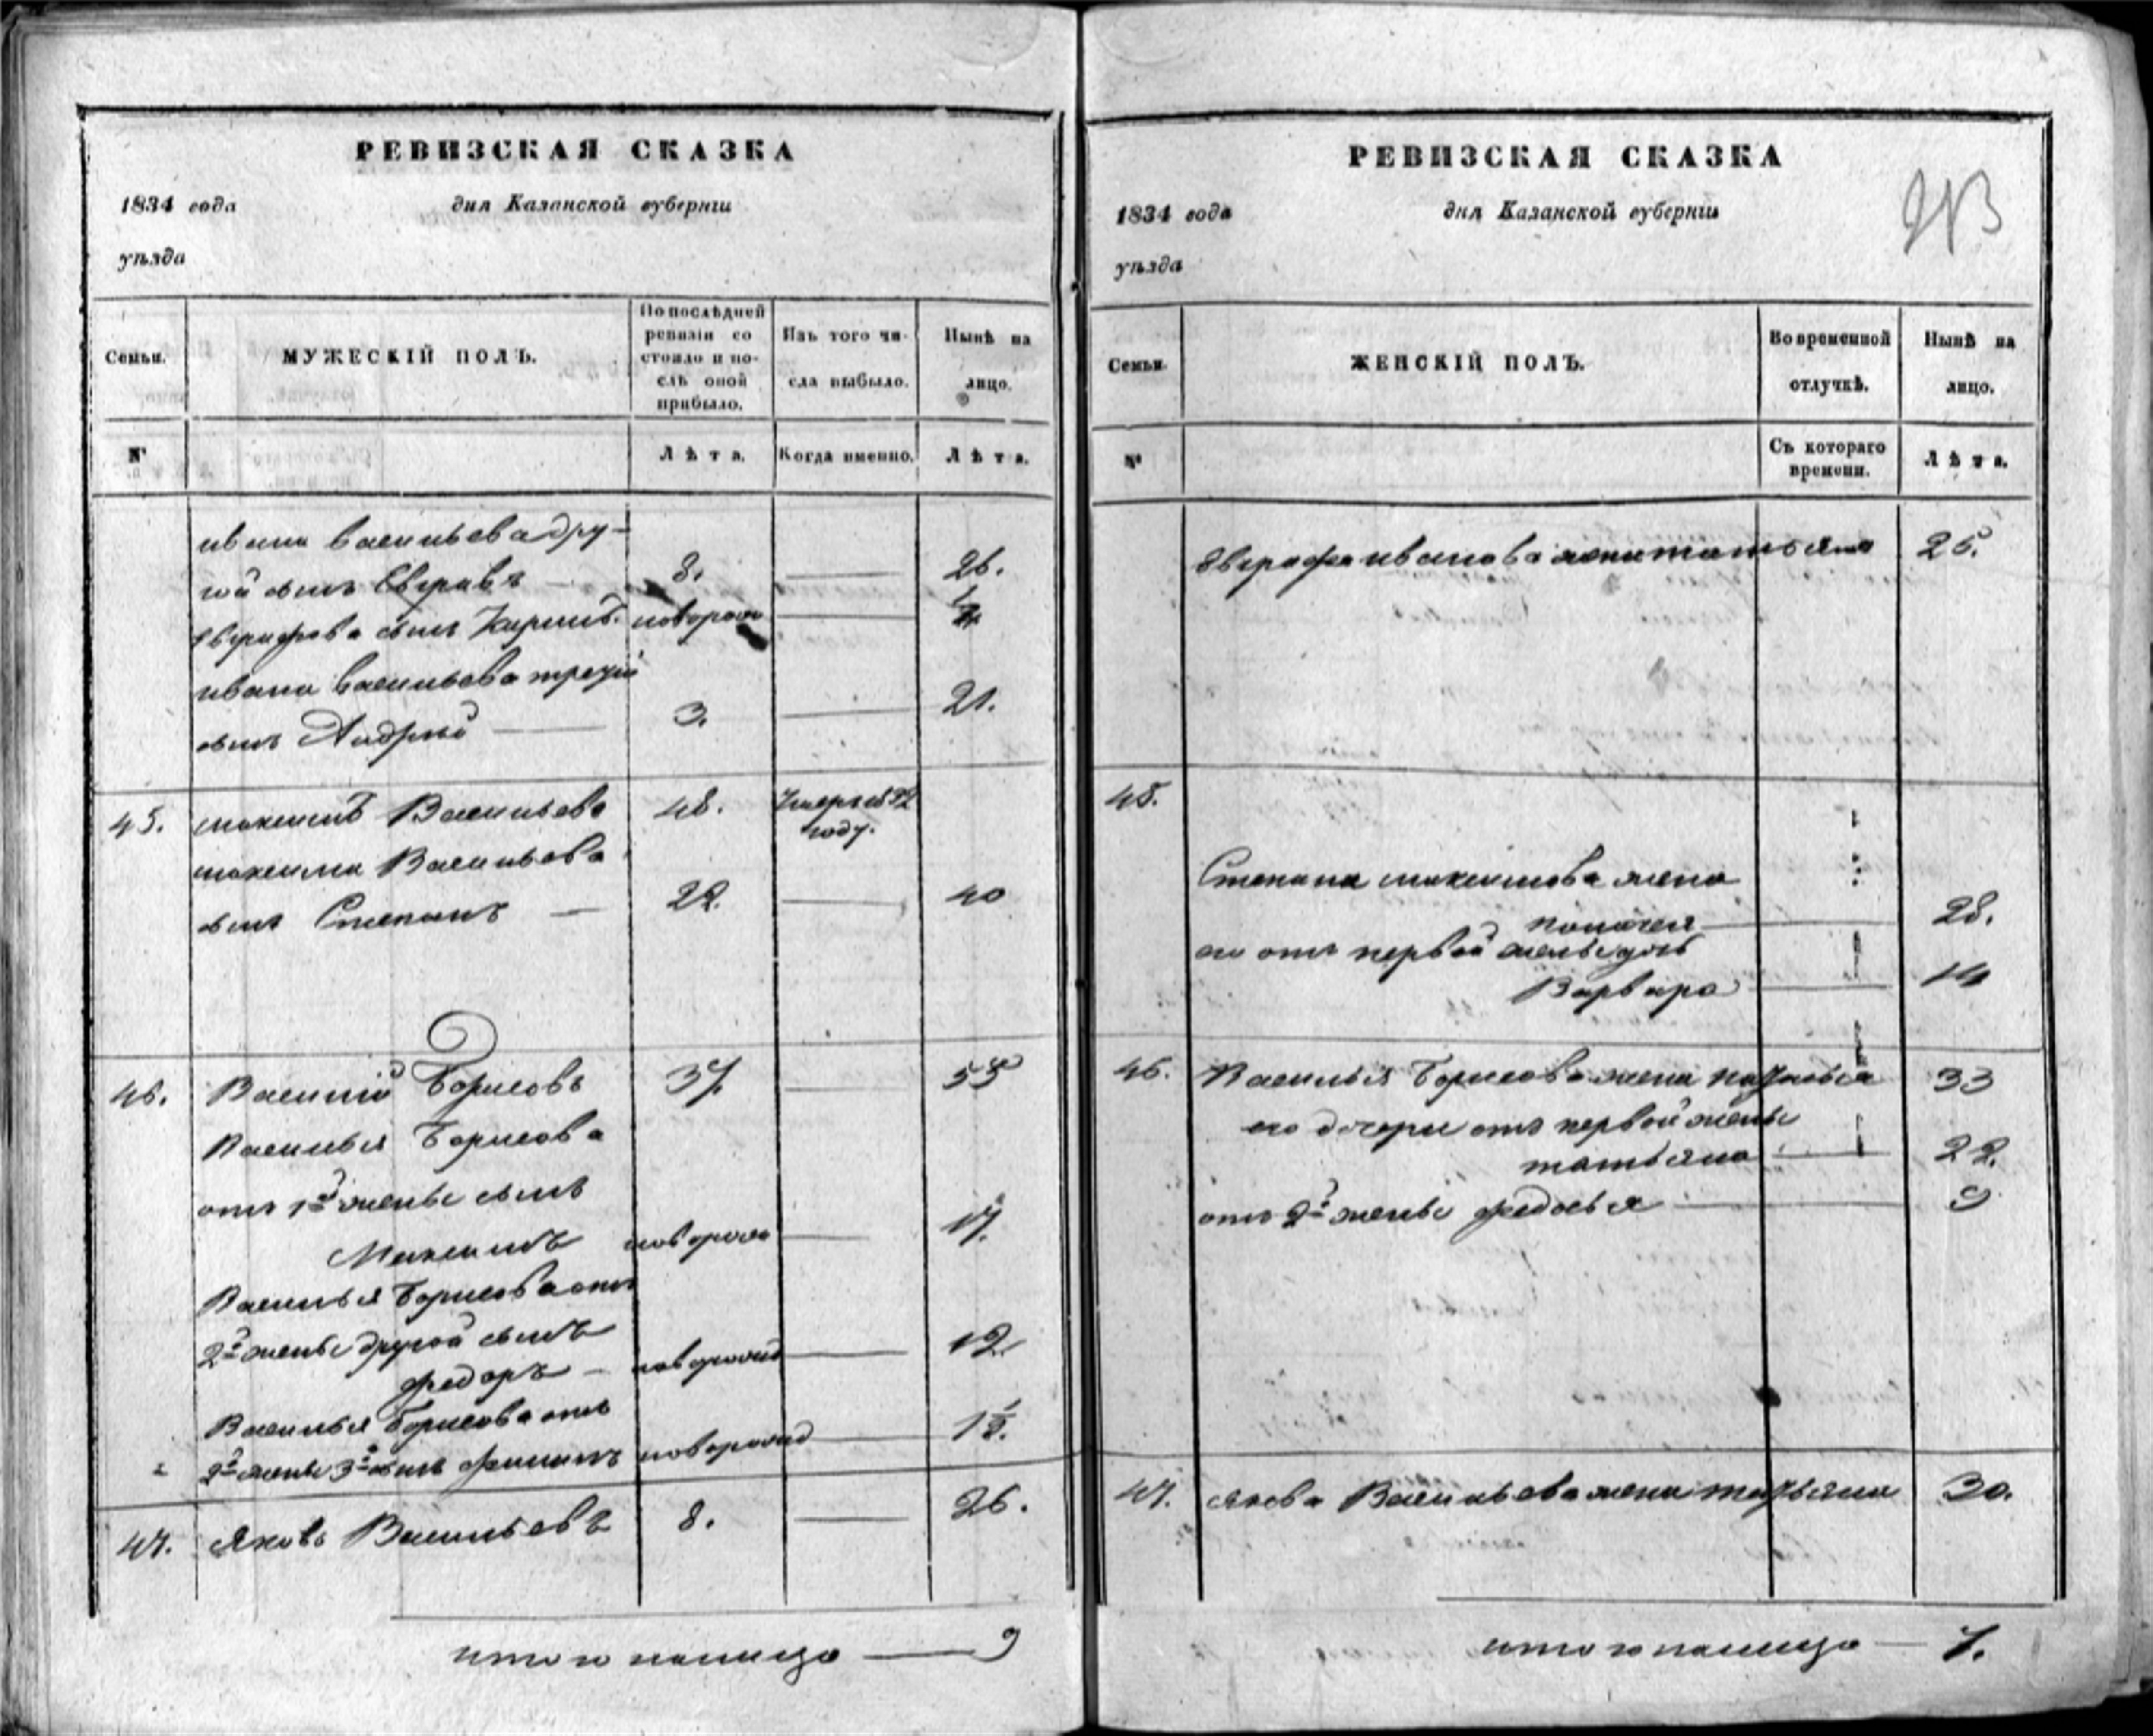 РЕВИЗСКАЯ СКАЗКА
1834 года дня Казанской губерніи
уѣзда
Семьи. МУЖЕСКІЙ ПОЛЪ. По послѣдней ревизіи состояло и послѣ оной прибыло. Изъ того числа выбыло. Нынѣ на лицо.
№ Лѣта. Когда именно. Лѣта.
ивана васильева дру-
гой сынъ Евграфъ 8. 26.
Евграфова сынъ новорож
ивана васильева третій
сынъ Андрей 3. 21.
45. максимъ Васильевъ 48. Умеръ
году.
максима Васильева
сынъ Степанъ 22. 40
46. Василій Борисовъ 37. 55
Василья Борисова
отъ 1й жены сынъ
Максимъ новорож 17.
Василья Борисова отъ
2й жены другой сынъ
федоръ новорожд 12.
Василья Борисова отъ
2й жены 3й сынъ филипъ новорожд 1½.
47. Яковъ Васильевъ 8. 26.
итого налицо 9
РЕВИЗСКАЯ СКАЗКА
1834 года дня Казанской губерніи
уѣзда
Семьи. ЖЕНСКІЙ ПОЛЪ. Во временной отлучкѣ. Нынѣ на лицо.
№ Съ котораго времени. Лѣта.
Евграфа иванова жена татьяна 25.
45.
Степана максимова жена
28.
его отъ первой жены дочь
Варвара 14
46. Василья Борисова жена 33
его дочери отъ первой жены
татьяна 22.
отъ 2й жены федосья 9
47. Якова Васильева жена татьяна 30.
итого налицо 7.